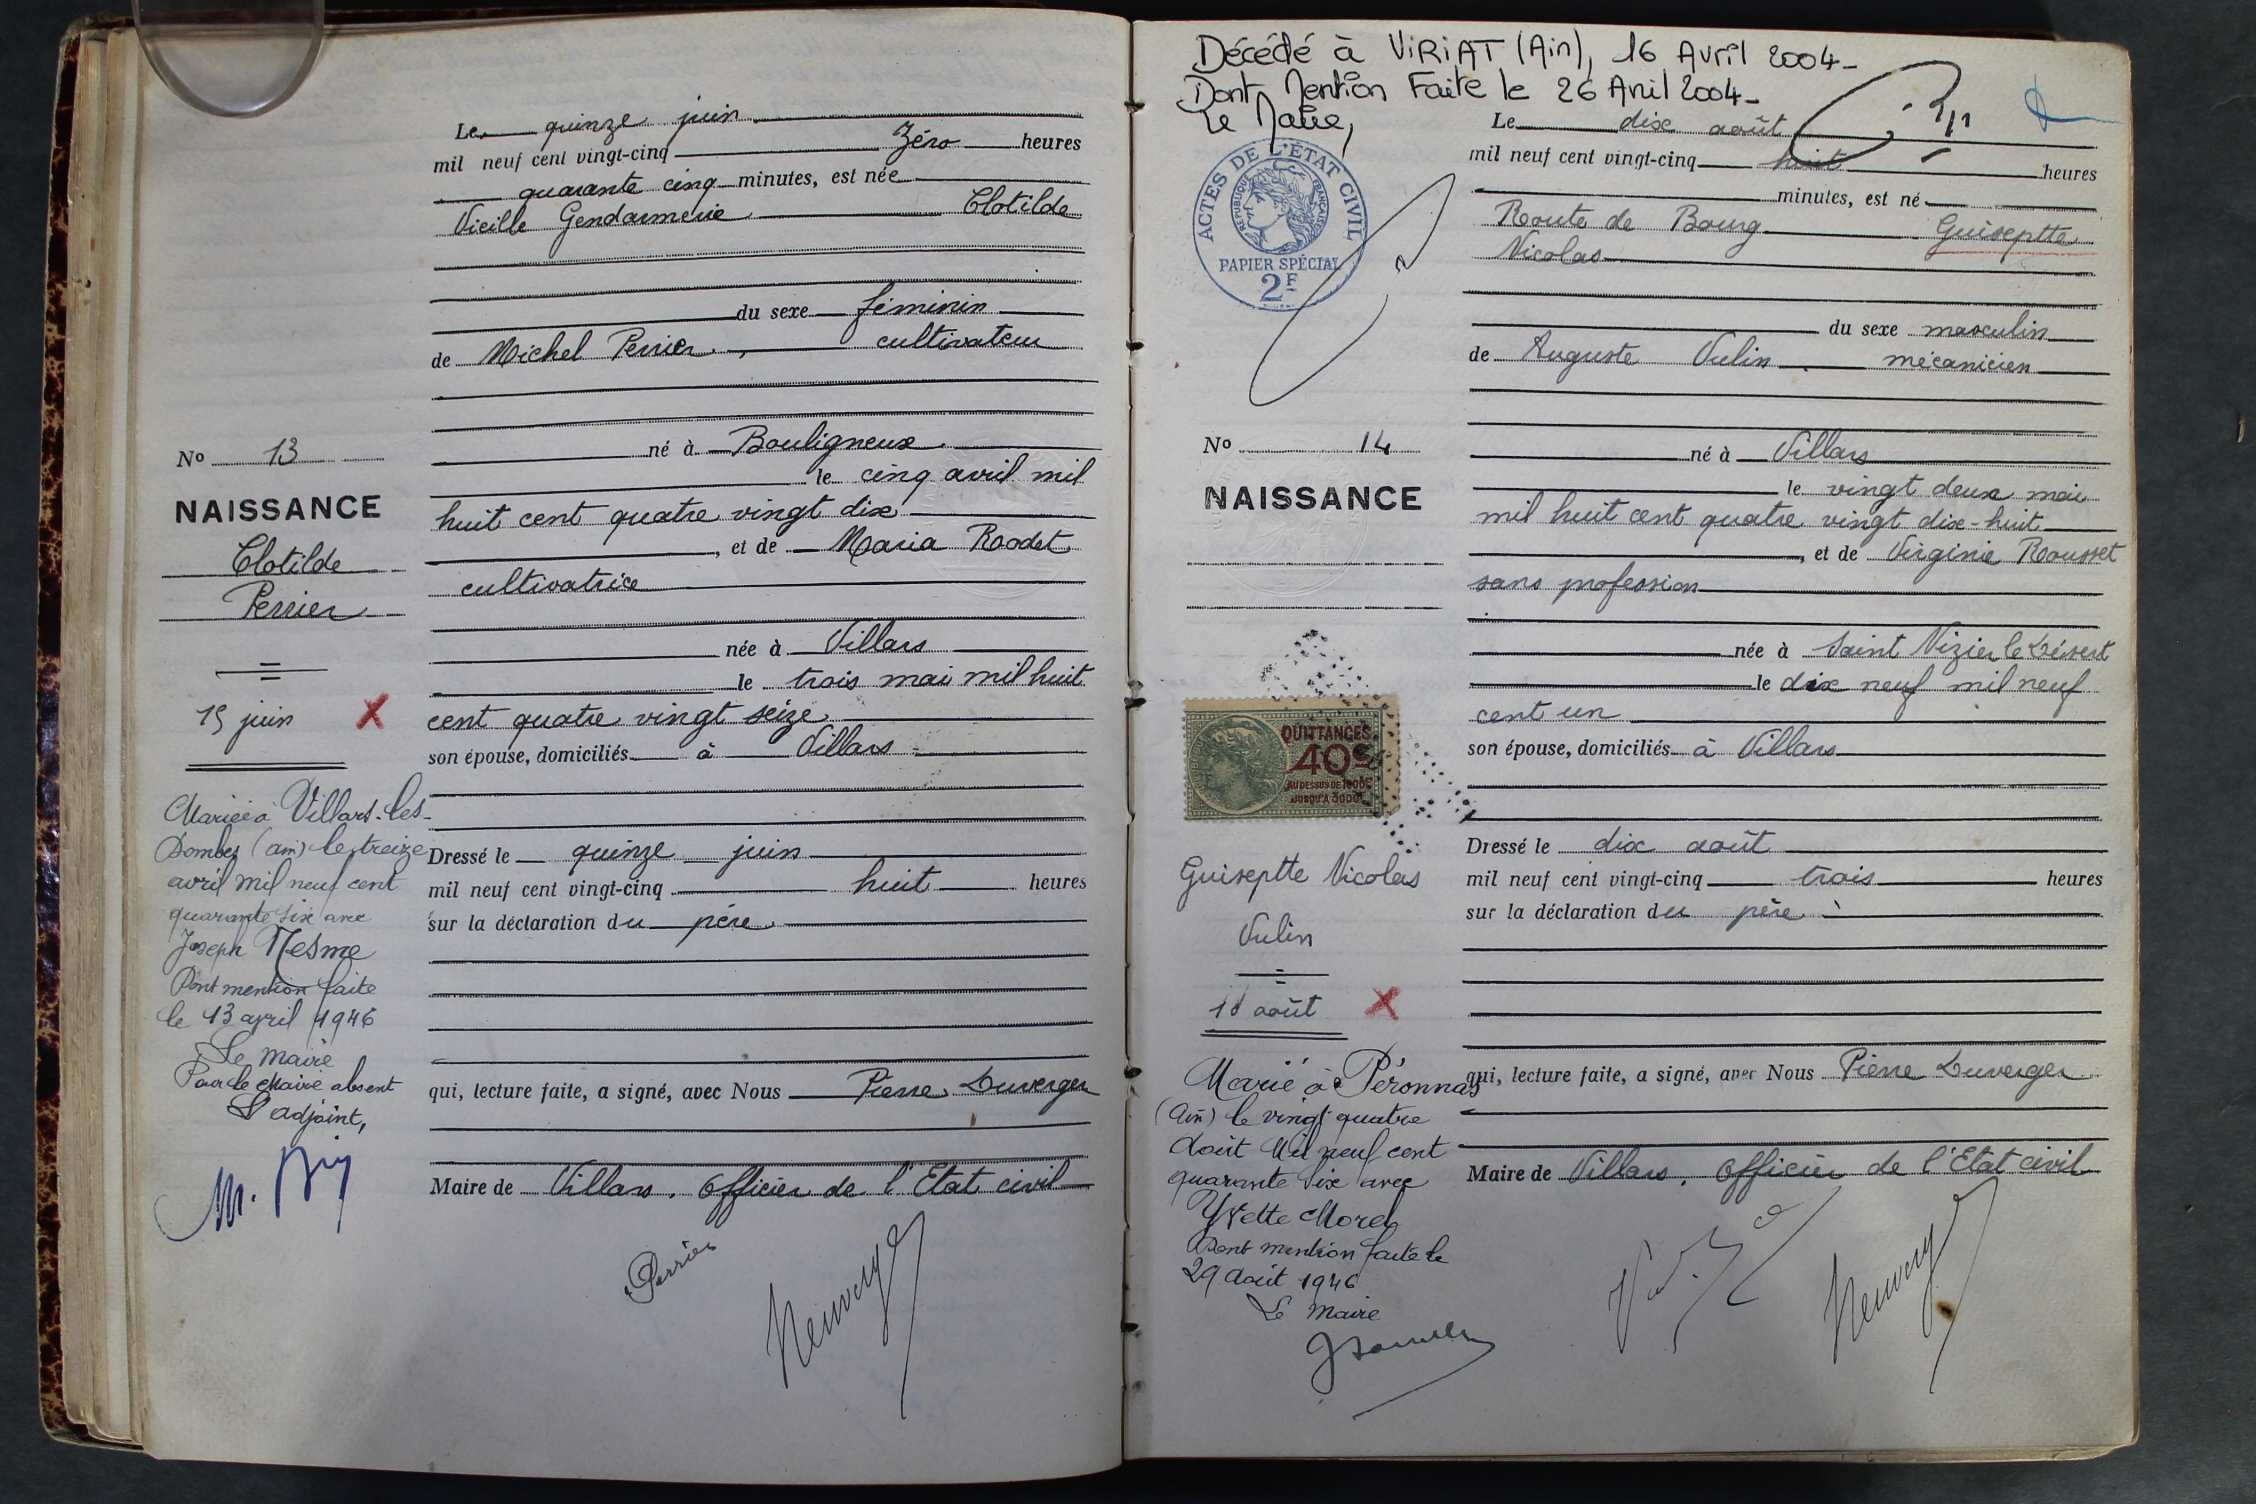 Le quinze juin
mil neuf cent vingt-cinq Zéro heures
quarante cinq minutes, est née
Vieille Gendarmerie Clotilde
du sexe féminin
de Michel Perrier, cultivateur
né à Bouligneux
le cinq avril mil
huit cent quatre vingt dix
, et de Maria Rodet
cultivatrice
née à Villars
le trois mai mil huit
cent quatre vingt seize
son épouse, domiciliés à Villars
Dressé le quinze juin
mil neuf cent vingt-cinq huit heures
sur la déclaration du père
qui, lecture faite, a signé, avec Nous Pierre Duverger
Maire de Villars. Officier de l'Etat civil
Perrier
No 13
NAISSANCE
Clotilde
Perrier
15 juin
Mariée à Villars-les-
Dombes (ain) le treize
avril mil neuf cent
quarante six avec
Joseph Nesme
Dont mention faite
le 13 avril 1946
Le maire
Pour le Maire absent
L'adjoint,
Décédé à VIRIAT (Ain), 16 Avril 2004-
Dont Mention Faite le 26 Avril 2004-
Le Maire,
ACTES DE L'ÉTAT CIVIL
RÉPUBLIQUE FRANÇAISE
PAPIER SPÉCIAL
2F
Le dix août
mil neuf cent vingt-cinq huit heures
minutes, est né
Route de Bourg Guiseptte
Nicolas
du sexe masculin
de Auguste Vulin mécanicien
né à Villars
le vingt deux mai
mil huit cent quatre vingt dix-huit
, et de Virginie Rousset
sans profession
née à Saint Nizier le Désert
le dix neuf mil neuf
cent un
son épouse, domiciliés à Villars
Dressé le dix août
mil neuf cent vingt-cinq trois heures
sur la déclaration du père
qui, lecture faite, a signé, avec Nous Pierre Duverger
Maire de Villars. Officier de l'Etat civil
No 14
NAISSANCE
QUITTANCES
40c
AU DESSUS DE 1000F
JUSQU'A 3000F
Guiseptte Nicolas
Vulin
10 août
Marié à Péronnas
(Ain) le vingt quatre
Août Mil neuf cent
quarante six avec
Yvette Morel
Dont mention faite le
29 Août 1946
Le Maire